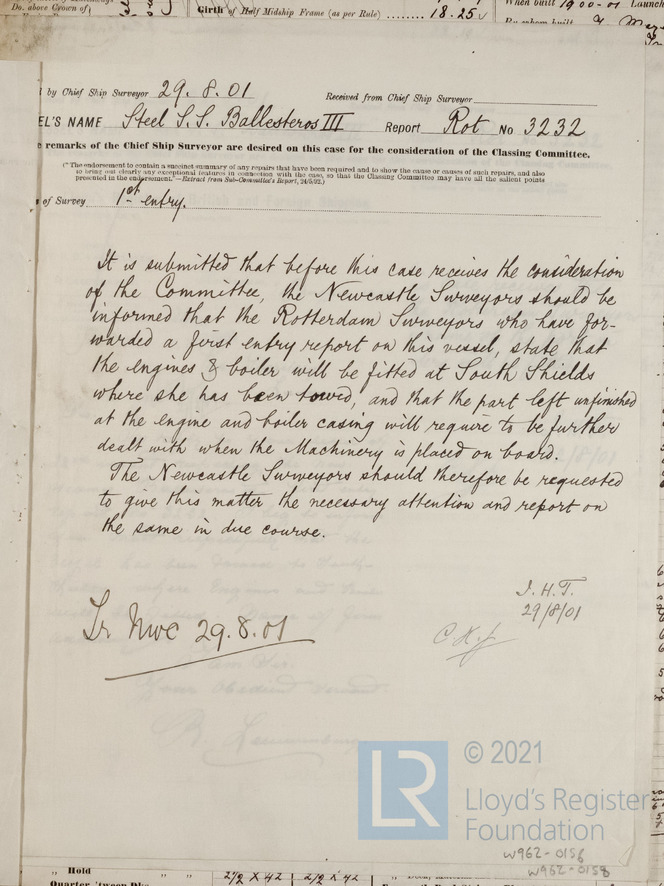 Do. above Crown of
Girth of Half Midship Frame (as per Rule) ........ 18.25
When built 1900-01 Launch
By whom built
by Chief Ship Surveyor 29.8.01 Received from Chief Ship Surveyor
EL'S NAME Steel S.S. Ballesteros III Report Rot No 3232
e remarks of the Chief Ship Surveyor are desired on this case for the consideration of the Classing Committee.
("The endorsement to contain a succinct summary of any repairs that have been required and to show the cause or causes of such repairs, and also
to bring out clearly any exceptional features in connection with the case, so that the Classing Committee may have all the salient points
presented in the endorsement."—Extract from Sub-Committee's Report, 24/5/92.)
of Survey 1st entry.
It is submitted that before this case receives the consideration
of the Committee, the Newcastle Surveyors should be
informed that the Rotterdam Surveyors who have for-
warded a first entry report on this vessel, state that
the engines & boiler will be fitted at South Shields
where she has been towed, and that the part left unfinished
at the engine and boiler casing will require to be further
dealt with when the Machinery is placed on board.
The Newcastle Surveyors should therefore be requested
to give this matter the necessary attention and report on
the same in due course.
J.H.T.
29/8/01
Lr Nwc 29.8.01
LR
© 2021
Lloyd's Register
Foundation
W962-0156
W962-0158
" Hold " " 2½ x 42 2½ x 42
Quarter 'tween Dks.